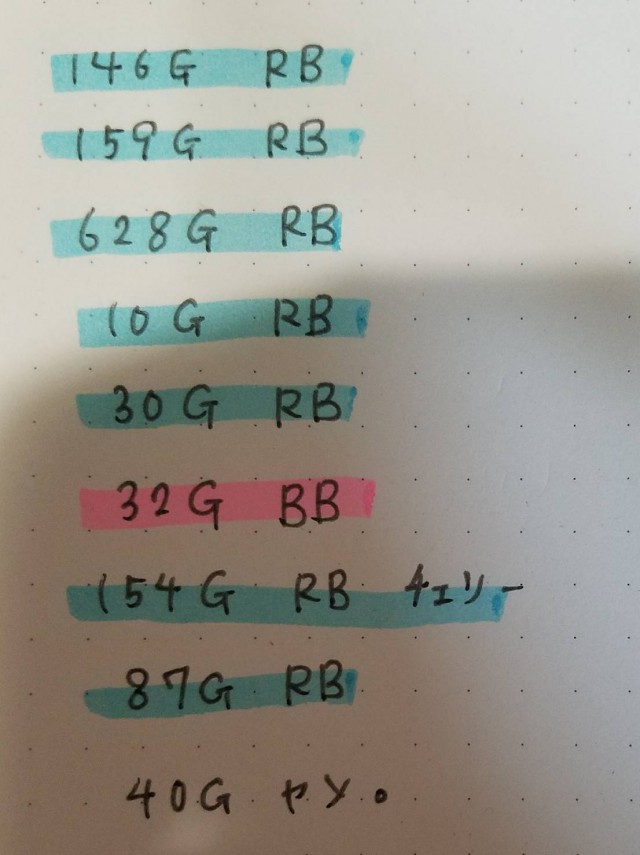 146G RB
159G RB
628G RB
10G RB
30G RB
32G BB
154G RB チェリー
87G RB
40G ヤメ。